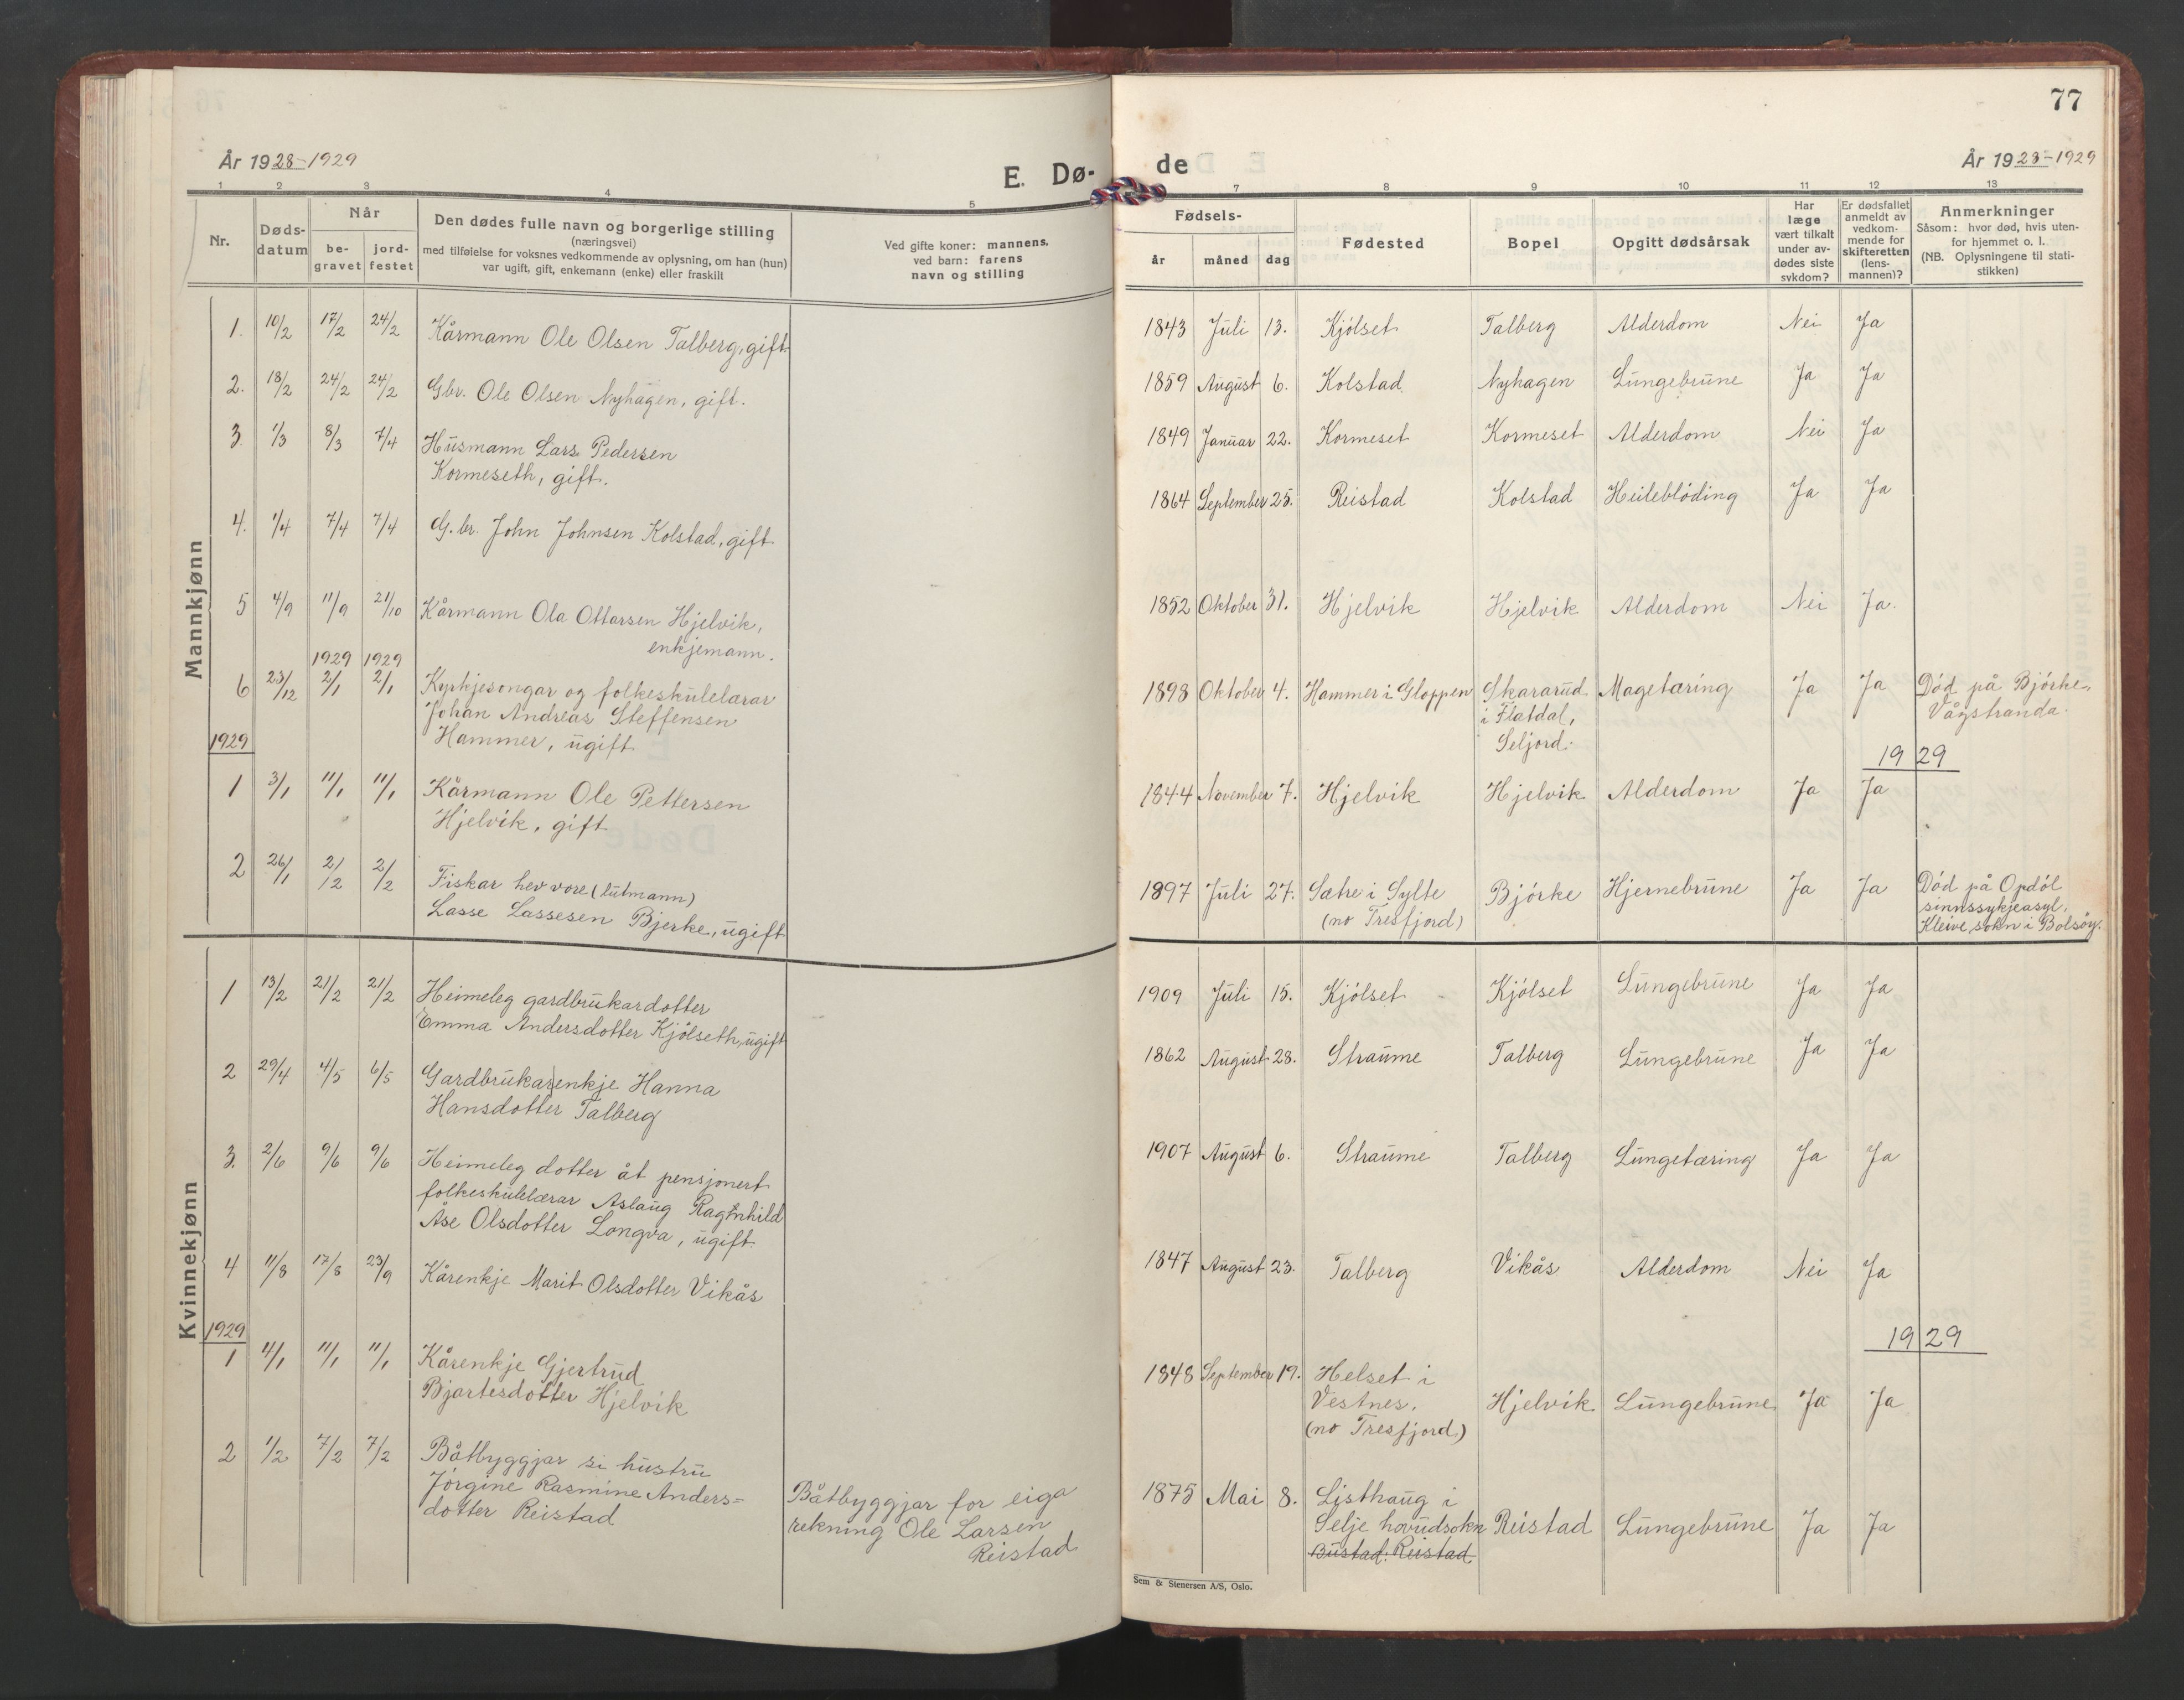 77
År 1928-1929
E. Dø-
de
År 1928-1929
1 2 3 4 5 7 8 9 10 11 12 13
Nr.
Døds-
datum
Når
be-
gravet
jord-
festet
Den dødes fulle navn og borgerlige stilling
(næringsvei)
med tilføielse for voksnes vedkommende av oplysning, om han (hun)
var ugift, gift, enkemann (enke) eller fraskilt
Ved gifte koner: mannens,
ved barn: farens
navn og stilling
Fødsels-
år måned dag
Fødested
Bopel
Opgitt dødsårsak
Har
læge
vært tilkalt
under av-
dødes siste
sykdom?
Er dødsfallet
anmeldt av
vedkom-
mende for
skifteretten
(lens-
mannen)?
Anmerkninger
Såsom: hvor død, hvis uten-
for hjemmet o. l.
(NB. Oplysningene til stati-
stikken)
Mannkjønn
1. 10/2 17/2 24/2 Kårmann Ole Olsen Talberg, gift. 1843 Juli 13. Kjölset Talberg Alderdom Nei Ja
2. 18/2 24/2 24/2 Gbr. Ole Olsen Nyhagen, gift. 1859 August 6. Kolstad Nyhagen Lungebrune Ja Ja
3. 1/3 8/3 7/4 Husmann Lars Pedersen 1849 Januar 22. Kormeset Kormeset Alderdom Nei Ja
Kormeseth, gift.
4. 1/4 7/4 7/4 G.br. John Johnsen Kolstad, gift 1864 September 25. Reistad Kolstad Heileblöding Ja Ja
5 4/9 11/9 21/10 Kårmann Ola Ottarsen Hjelvik, 1852 Oktober 31. Hjelvik Hjelvik Alderdom Nei Ja.
enkjemann.
1929 1929
6 23/12 2/1 2/1 Kyrkjesongar og folkeskulelærar 1898 Oktober 4. Hammer i Gloppen Skararud Magetæring Ja Ja Död på Bjórke,
Johan Andreas Steffensen i Flatdal, Vågstranda.
Hammer, ugift Seljord.
1929
1929
1 3/1 11/1 11/1 Kårmann Ole Pettersen 1844 November 7. Hjelvik Hjelvik Alderdom Ja Ja
Hjelvik, gift
2 26/1 2/2 2/2 Fiskar hev vore (lutmann) 1897 Juli 27. Sætre i Sylte Bjórke Hjernebrune Ja Ja Död på Opdöl
Lasse Lassesen Bjerke, ugift (no Tresfjord) sinnssykjeasyl,
Kleive sokn i Bolsöy.
Kvinnekjønn
1 13/2 21/2 21/2 Heimeleg gardbrukardotter 1909 Juli 15. Kjölset Kjölset Lungebrune Ja Ja
Emma Andersdotter Kjölseth, ugift
2 29/4 4/5 6/5 Gardbrukarenkje Hanna 1862 August 28. Straume Talberg Lungebrune Ja Ja
Hansdotter Talberg
3. 2/6 9/6 9/6 Heimeleg dotter åt pensjonert 1907 August 6. Straume Talberg Lungetæring Ja Ja
folkeskulelærar Aslaug Ragnhild
Åse Olsdotter Longva, ugift.
4 11/8 17/8 23/9 Kårenkje Marit Olsdotter Vikås 1847 August 23. Talberg Vikås Alderdom Nei Ja
1929
1929
1 4/1 11/1 11/1 Kårenkje Gjertrud 1848 September 19. Helset i
Bjartesdotter Hjelvik Vestnes. Hjelvik Lungebrune Ja Ja
(no Tresfjord)
2 1/2 7/2 7/2 Båtbyggjar si hustru 1875 Mai 8. Listhaug i
Jörgine Rasmine Anders= Båtbyggjar for eiga Selje hovudsokn Reistad Lungebrune Ja Ja
dotter Reistad rekning Ole Larsen Bustad: Reistad
Reistad
Sem & Stenersen A/S, Oslo.